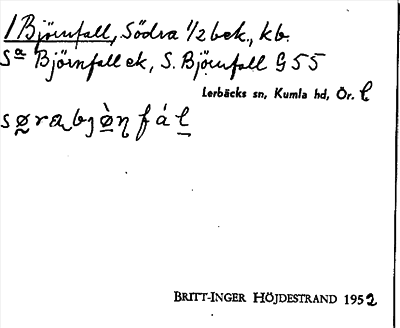 1 Björnfall, Södra 1/2 bek., kb.
Sa Björnfall ek, S. Björnfall G 55
Lerbäcks sn, Kumla hd, Ör. l
BRITT-INGER HÖJDESTRAND 1952